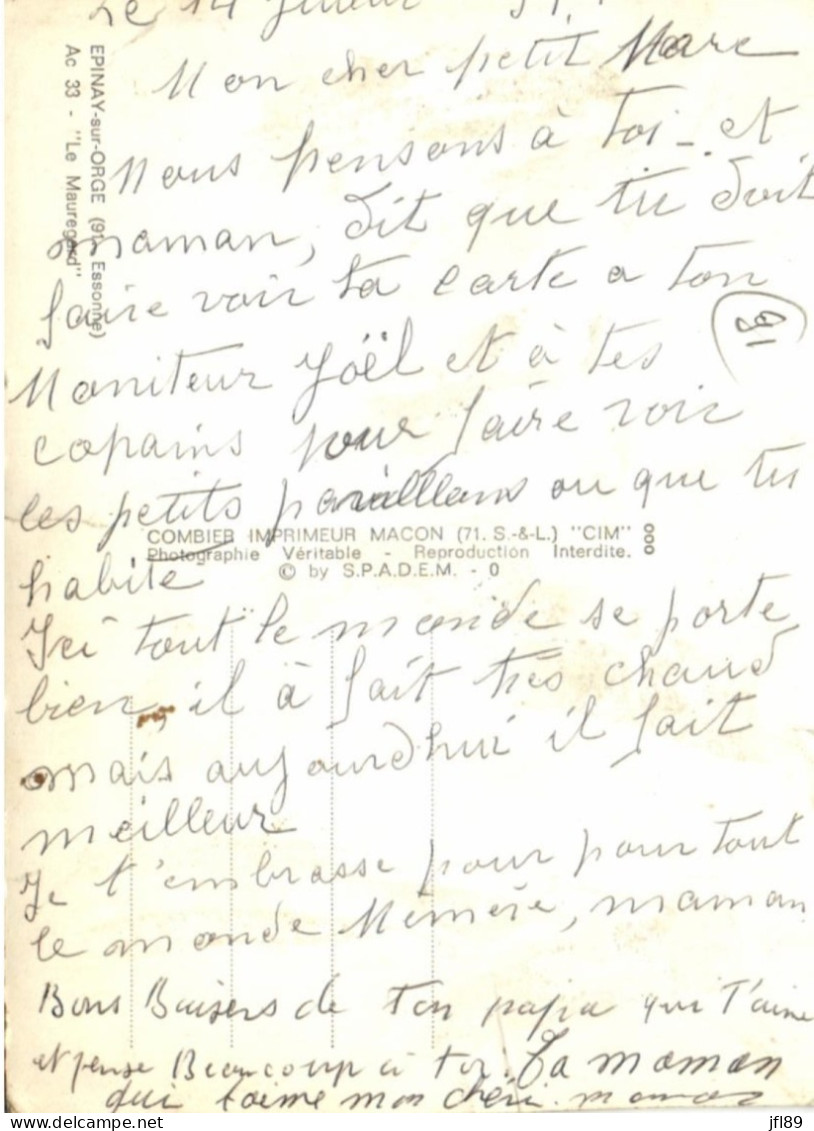 Le 14
Mon cher petit Marc
Nous pensons à toi - et
maman, dit que tu doit
faire voir ta carte a ton
Moniteur Joël et à tes
copains pour faire voir
les petits pavillons ou que tu
habite
Ici tout le monde se porte
bien, il à fait très chaud
mais aujourdhui il fait
meilleur
Je t'embrasse pour pour tout
le monde Mémére, maman
Bons Baisers de ton papa qui t'aime
et pense Beaucoup a toi. Ta maman
qui t'aime mon chéri. maman
EPINAY-sur-ORGE (91 - Essonne)
Ac 33 - "Le Mauregard"
91
COMBIER IMPRIMEUR MACON (71. S.-&-L.) "CIM"
Photographie Véritable - Reproduction Interdite.
© by S.P.A.D.E.M. - 0
000
jfl89